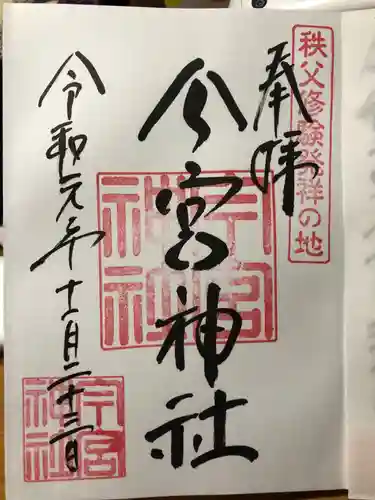 奉拝
秩父修験発祥の地
今宮神社
今宮神社
令和元年十一月二十三日
今宮神社